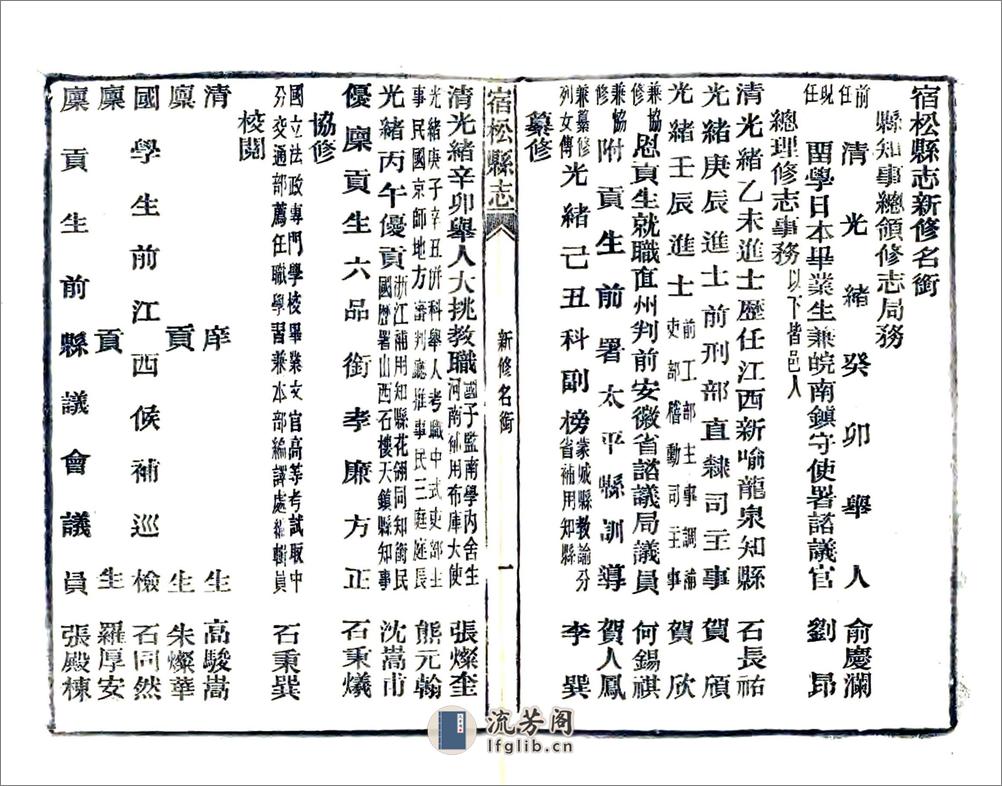 宿松縣志新修名銜
縣知事總領修志局務
前任 清光緒癸卯舉人 俞慶瀾
現任 留學日本畢業生兼皖南鎮守使署諮議官 劉昂
總理修志事務以下皆邑人
清光緒乙未進士歷任江西新喻龍泉知縣 石長祐
光緒庚辰進士前刑部直隸司主事 賀頎
光緒壬辰進士前工部主事調補吏部稽勳司主事 賀欣
兼協修 恩貢生就職直州判前安徽省諮議局議員 何錫祺
兼協修 附貢生前署太平縣訓導 賀人鳳
兼纂修列女傳 光緒己丑科副榜蒙城縣教諭分省補用知縣 李巽
纂修
宿松縣志
新修名銜
一
清光緒辛卯舉人大挑教職國子監南學內舍生河南補用布庫大使 張燦奎
光緒庚子辛丑併科舉人考職中式吏部主事民國京師地方審判廳推事民三庭庭長 熊元翰
光緒丙午優貢浙江補用知縣花翎同知銜民國歷署山西石樓天鎮縣知事 沈嵩甫
優廩貢生六品銜孝廉方正 石秉爔
協修
國立法政專門學校畢業文官高等考試取中分交通部薦任職學習兼本部編譯處編輯員 石秉巽
校閱
清庠生 高駿嵩
廩貢生 朱燦華
國學生前江西候補巡檢 石同然
廩貢生 羅厚安
廩貢生前縣議會議員 張殿棟
流芳阁
lfglib.cn